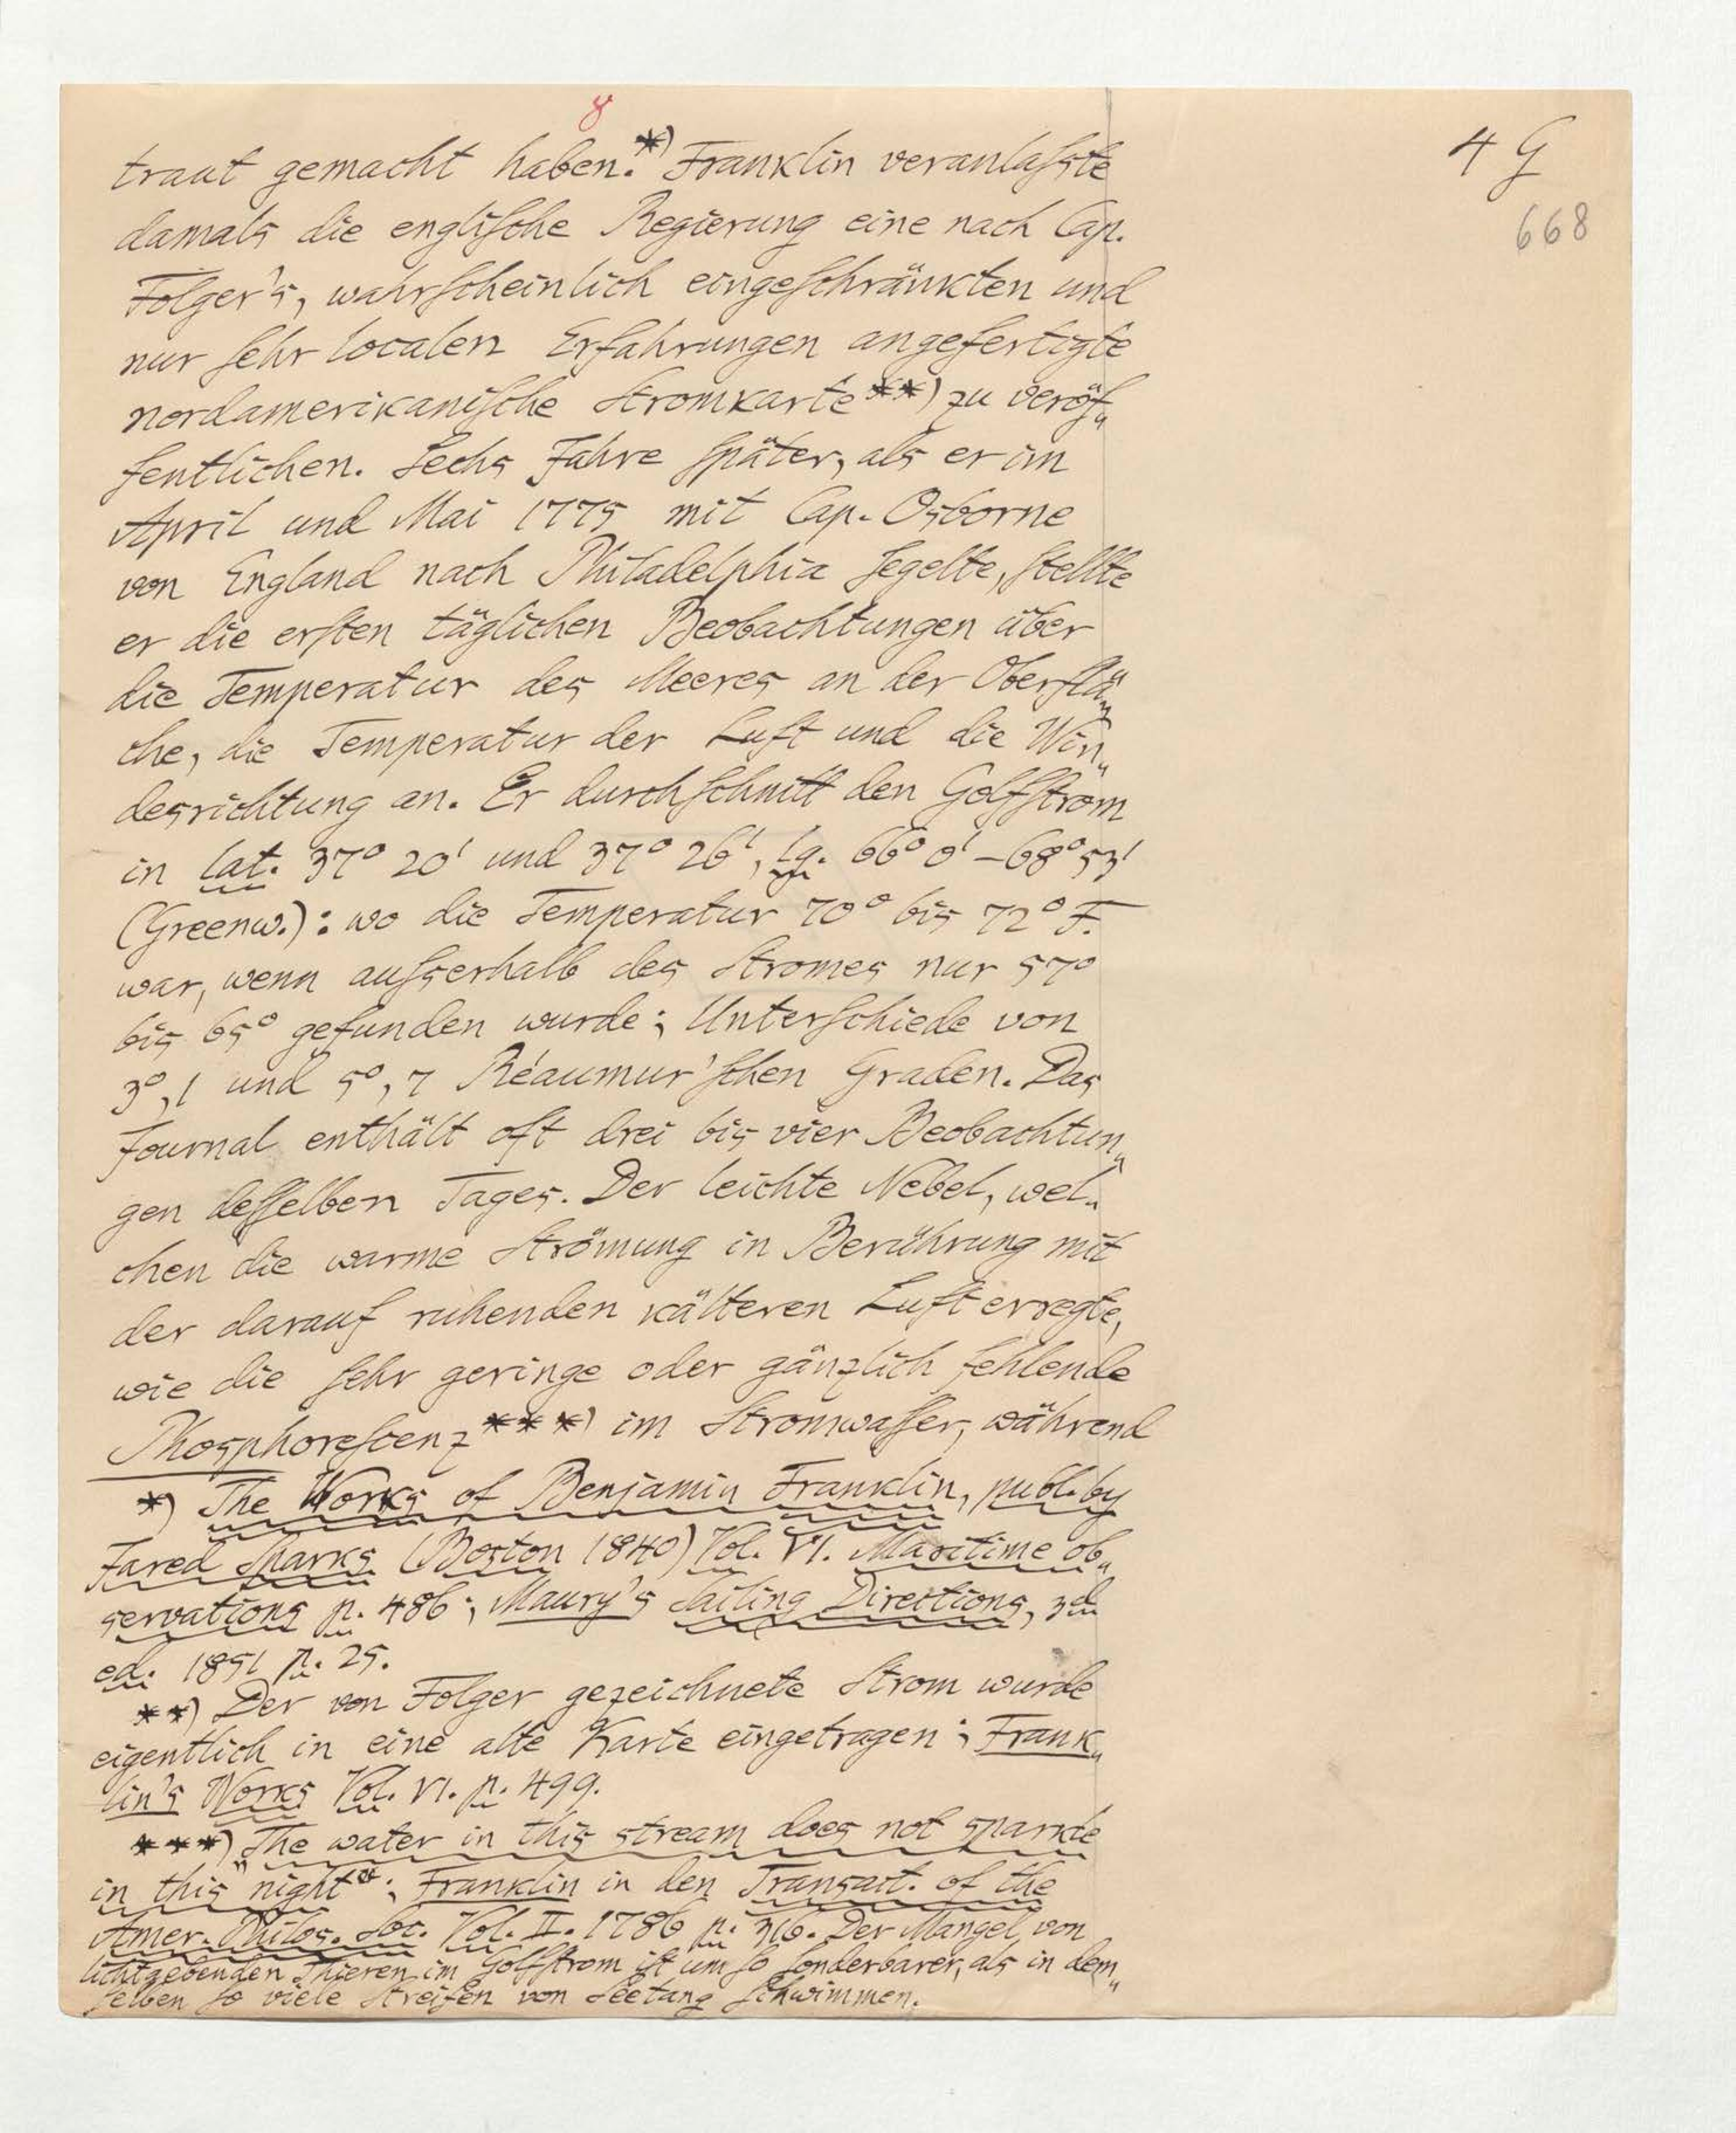 8
4 G
668
traut gemacht haben.*) Franklin veranlaſste
damals die engliſche Regierung eine nach Cap.
Folger's, wahrſcheinlich eingeſchränkten und
nur ſehr localen Erfahrungen angefertigte
nordamerikaniſche Stromkarte**) zu veröf„
fentlichen. Sechs Jahre ſpäter, als er im
April und Mai 1775 mit Cap. Osborne
von England nach Philadelphia ſegelte, ſtellte
er die erſten täglichen Beobachtungen über
die Temperatur des Meeres an der Oberflä„
che, die Temperatur der Luft und die Win„
desrichtung an. Er durchſchnitt den Golfſtrom
in lat. 37° 20' und 37° 26', lg. 66° 0' – 68° 53'
(Greenw.): wo die Temperatur 70° bis 72° F.
war, wenn auſserhalb des Stromes nur 57°
bis 65° gefunden wurde; Unterſchiede von
3°,1 und 5°,7 Réaumur'ſchen Graden. Das
Journal enthält oft drei bis vier Beobachtun„
gen deſſelben Tages. Der leichte Nebel, wel„
chen die warme Strömung in Berührung mit
der darauf ruhenden kälteren Luft erregte,
wie die ſehr geringe oder gänzlich fehlende
Phosphoreſcenz***) im Stromwaſſer, während
*) The Works of Benjamin Franklin, publ. by
Jared Sparks (Boston 1840) Vol. VI. Maritime ob„
servations p. 486; Maury's Sailing Directions, 3d
ed. 1851 p. 25.
**) Der von Folger gezeichnete Strom wurde
eigentlich in eine alte Karte eingetragen; Frank„
lin's Works Vol. VI. p. 499.
***) „The water in this stream does not sparkle
in this night“; Franklin in den Transact. of the
Amer. Philos. Soc. Vol. II. 1786 p. 316. Der Mangel von
lichtgebenden Thieren im Golfſtrom iſt um ſo ſonderbarer, als in dem„
ſelben ſo viele Streifen von Seetang ſchwimmen.